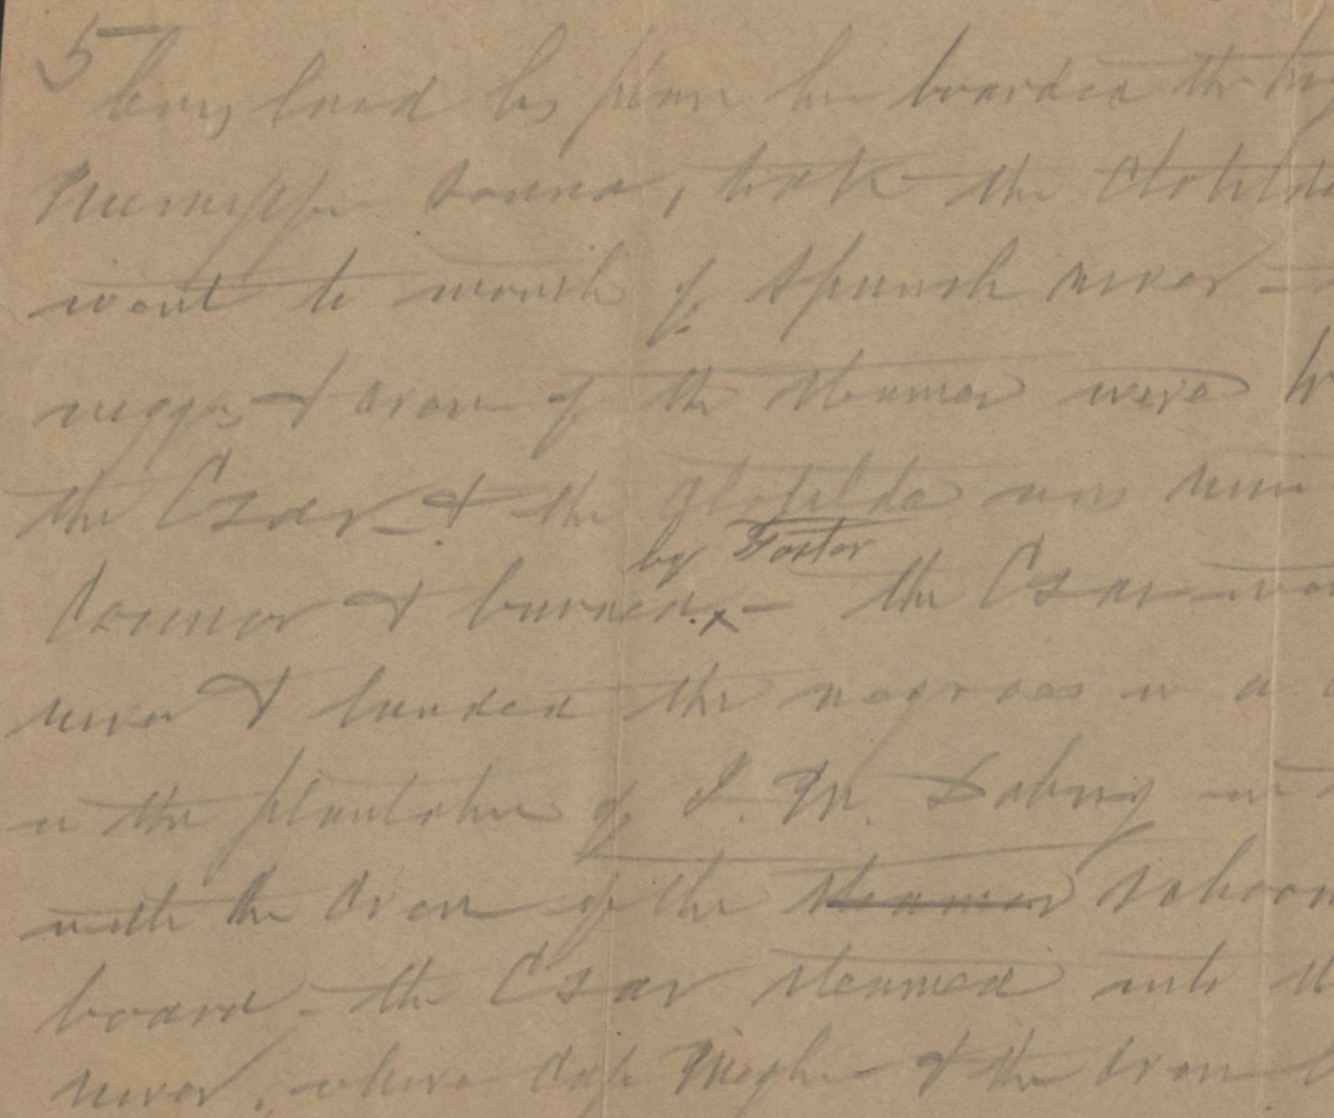 5
being laid by plan he boarded the tug
Mississippi Sound, took the Clotilda
went to mouth of Spanish river -
& crew of the steamer were
the Czar - & the Clotilda was run
by Foster
& burned. x - the Czar
river & landed the negroes in a
in the plantation of J. M. Dabney
with the crew of the steamer schoon
board - the Czar steamed into
river, where Cap Meaher & the crew